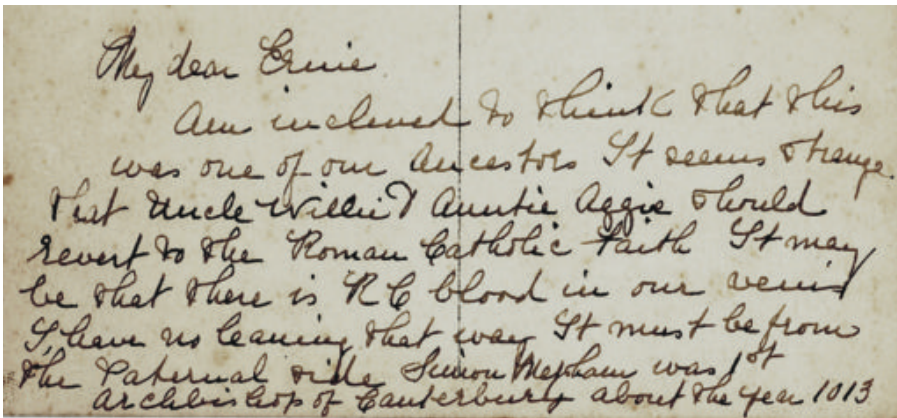 My dear Ernie
Am inclined to think that this
was one of our Ancestors It seems strange
that Uncle Willie & Auntie Aggie should
revert to the Roman Catholic Faith It may
be that there is RC blood in our veins
I have no leaning that way It must be from
the Paternal side Simon Mepham was 1st
Archbishop of Canterbury about the year 1013